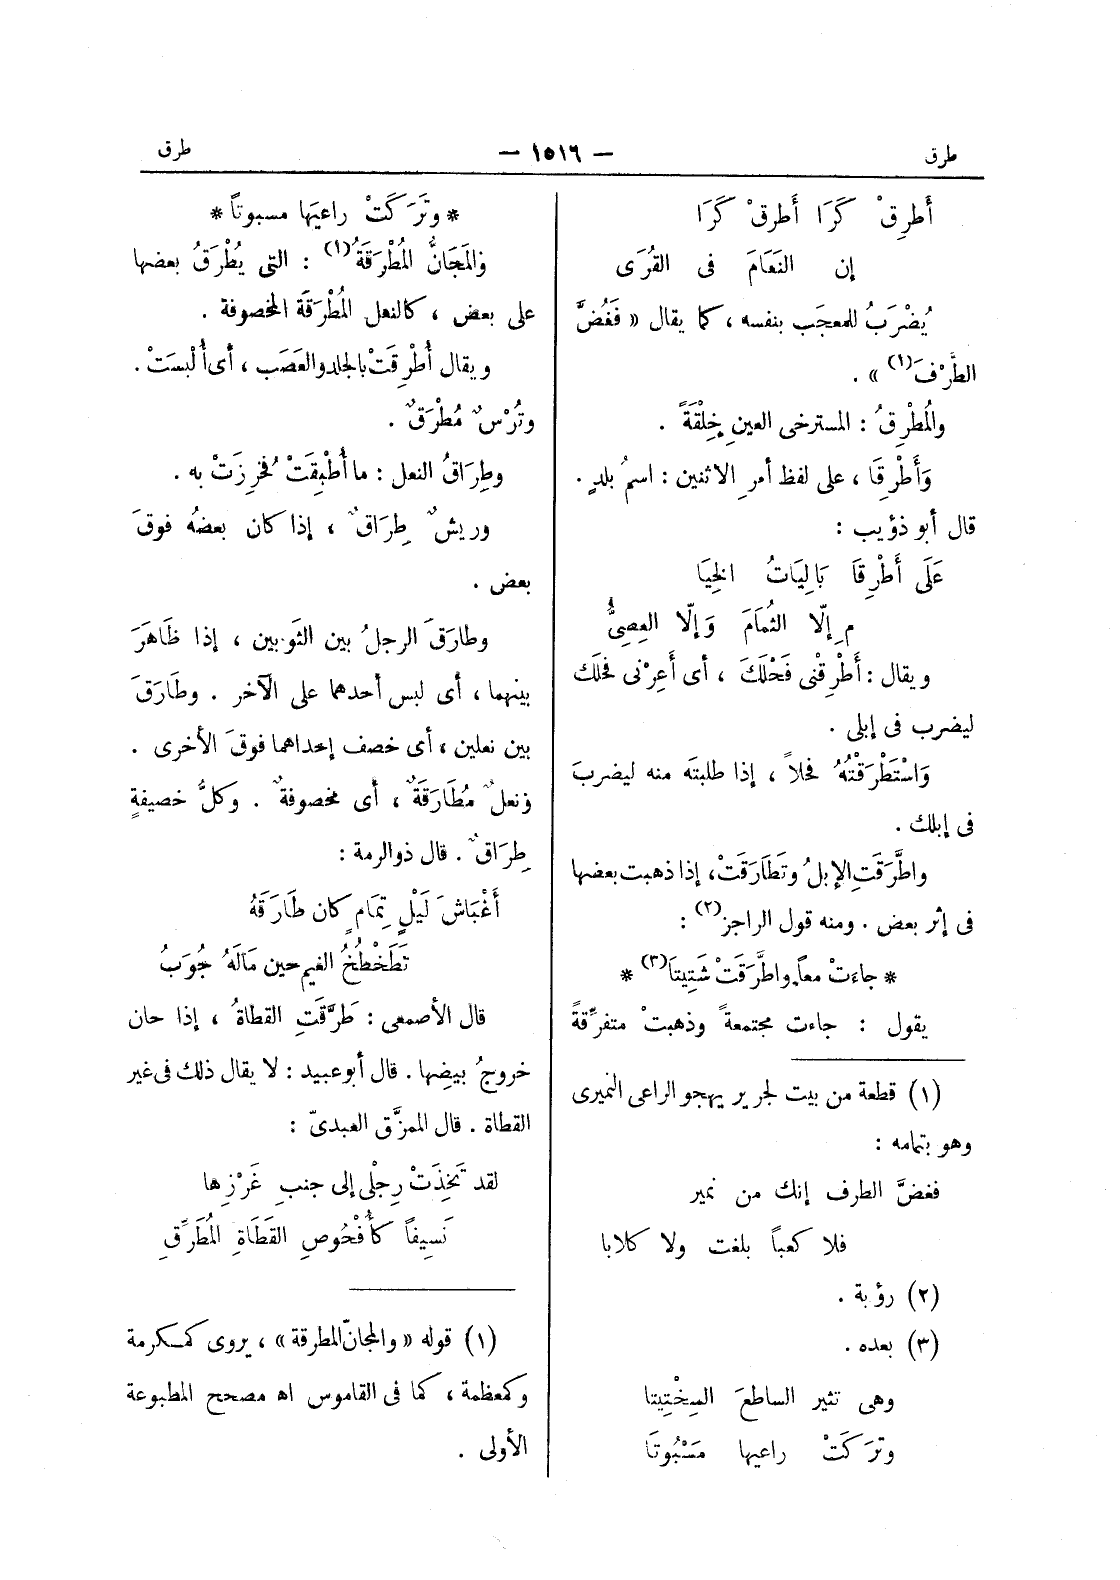 طرق
— ١٥١٦ —
طرق
أَطرِقْ كَرَا أَطرِقْ كَرَا
إن النَعَامَ فى القُرَى
يُضْرَبُ للمعجَب بنفسه ، كما يقال « فَغُضَّ
الطَّرْفَ (١) » .
والمُطْرِقُ : المسترخى العينِ خِلْقَةً .
وَأَطْرِقَا ، على لفظ أمرِ الاثنين : اسمُ بلدٍ .
قال أبو ذؤيب :
عَلَى أَطْرِقَا بَالِيَاتُ الخِيَا
مِ إلّا الثُمَامَ وَإلّا العِصِىُّ
ويقال : أَطْرِقْنى فَحْلَكَ ، أى أَعِرْنى فحلك
ليضرب فى إبلى .
وَاسْتَطْرَقْتُهُ فحلاً ، إذا طلبتَه منه ليضربَ
فى إبلك .
واطَّرَقَتِ الإبلُ وتَطَارَقَتْ ، إذا ذهبت بعضها
فى إثر بعض . ومنه قول الراجز (٢) :
* جاءتْ معاً واطَّرَقَتْ شَتِيتَا (٣) *
يقول : جاءت مجتمعةً وذهبتْ متفرِّقةً
(١) قطعة من بيت لجرير يهجو الراعى النميرى
وهو بتمامه :
فغضَّ الطرف إنك من نمير
فلا كعباً بلغت ولا كلابا
(٢) رؤبة .
(٣) بعده .
وهى تثير الساطعَ السِخْتِيتا
وتَرَكَتْ راعيها مَسْبُوتَا
* وتَرَكَتْ راعيَها مسبوتاً *
والمَجَانُّ المُطْرَقَةُ (١) : التى يُطْرَقُ بعضها
على بعض ، كالنعل المُطْرَقَة المخصوفة .
ويقال أُطْرِقَتْ بالجلد والعَصَب ، أى أُلْبِسَتْ .
وتُرْسٌ مُطْرَقٌ .
وطِرَاقُ النعل : ما أُطْبِقَتْ فُخرِزَتْ به .
وريشٌ طِرَاقٌ ، إذا كان بعضُه فوقَ
بعض .
وطارَقَ الرجلُ بين الثَوبين ، إذا ظَاهَرَ
بينهما ، أى لبس أحدهما على الآخر . وطَارَقَ
بين نعلين ، أى خصف إحداهما فوقَ الأخرى .
ونعلٌ مُطَارَقَةٌ ، أى مخصوفةٌ . وكلُّ خصيفةٍ
طِرَاقٌ . قال ذو الرمة :
أَغْبَاشَ لَيْلِ تِمَامٍ كان طَارَقَهُ
تَطَخْطُخُ الغيم حين مَالَهُ جُوَبُ
قال الأصمعى : طَرَّقَتِ القطاةُ ، إذا حان
خروجُ بيضِها . قال أبو عبيد : لا يقال ذلك فى غير
القطاة . قال الممزَّق العبدىّ :
لقد تَخِذَتْ رِجْلى إلى جنبِ غَرْزِها
نَسِيفاً كأُفْحُوصِ القَطَاةِ المُطَرِّقِ
(١) قوله « والمجانّ المطرقة » ، يروى كمكرمة
وكمعظمة ، كما فى القاموس اه مصحح المطبوعة
الأولى .